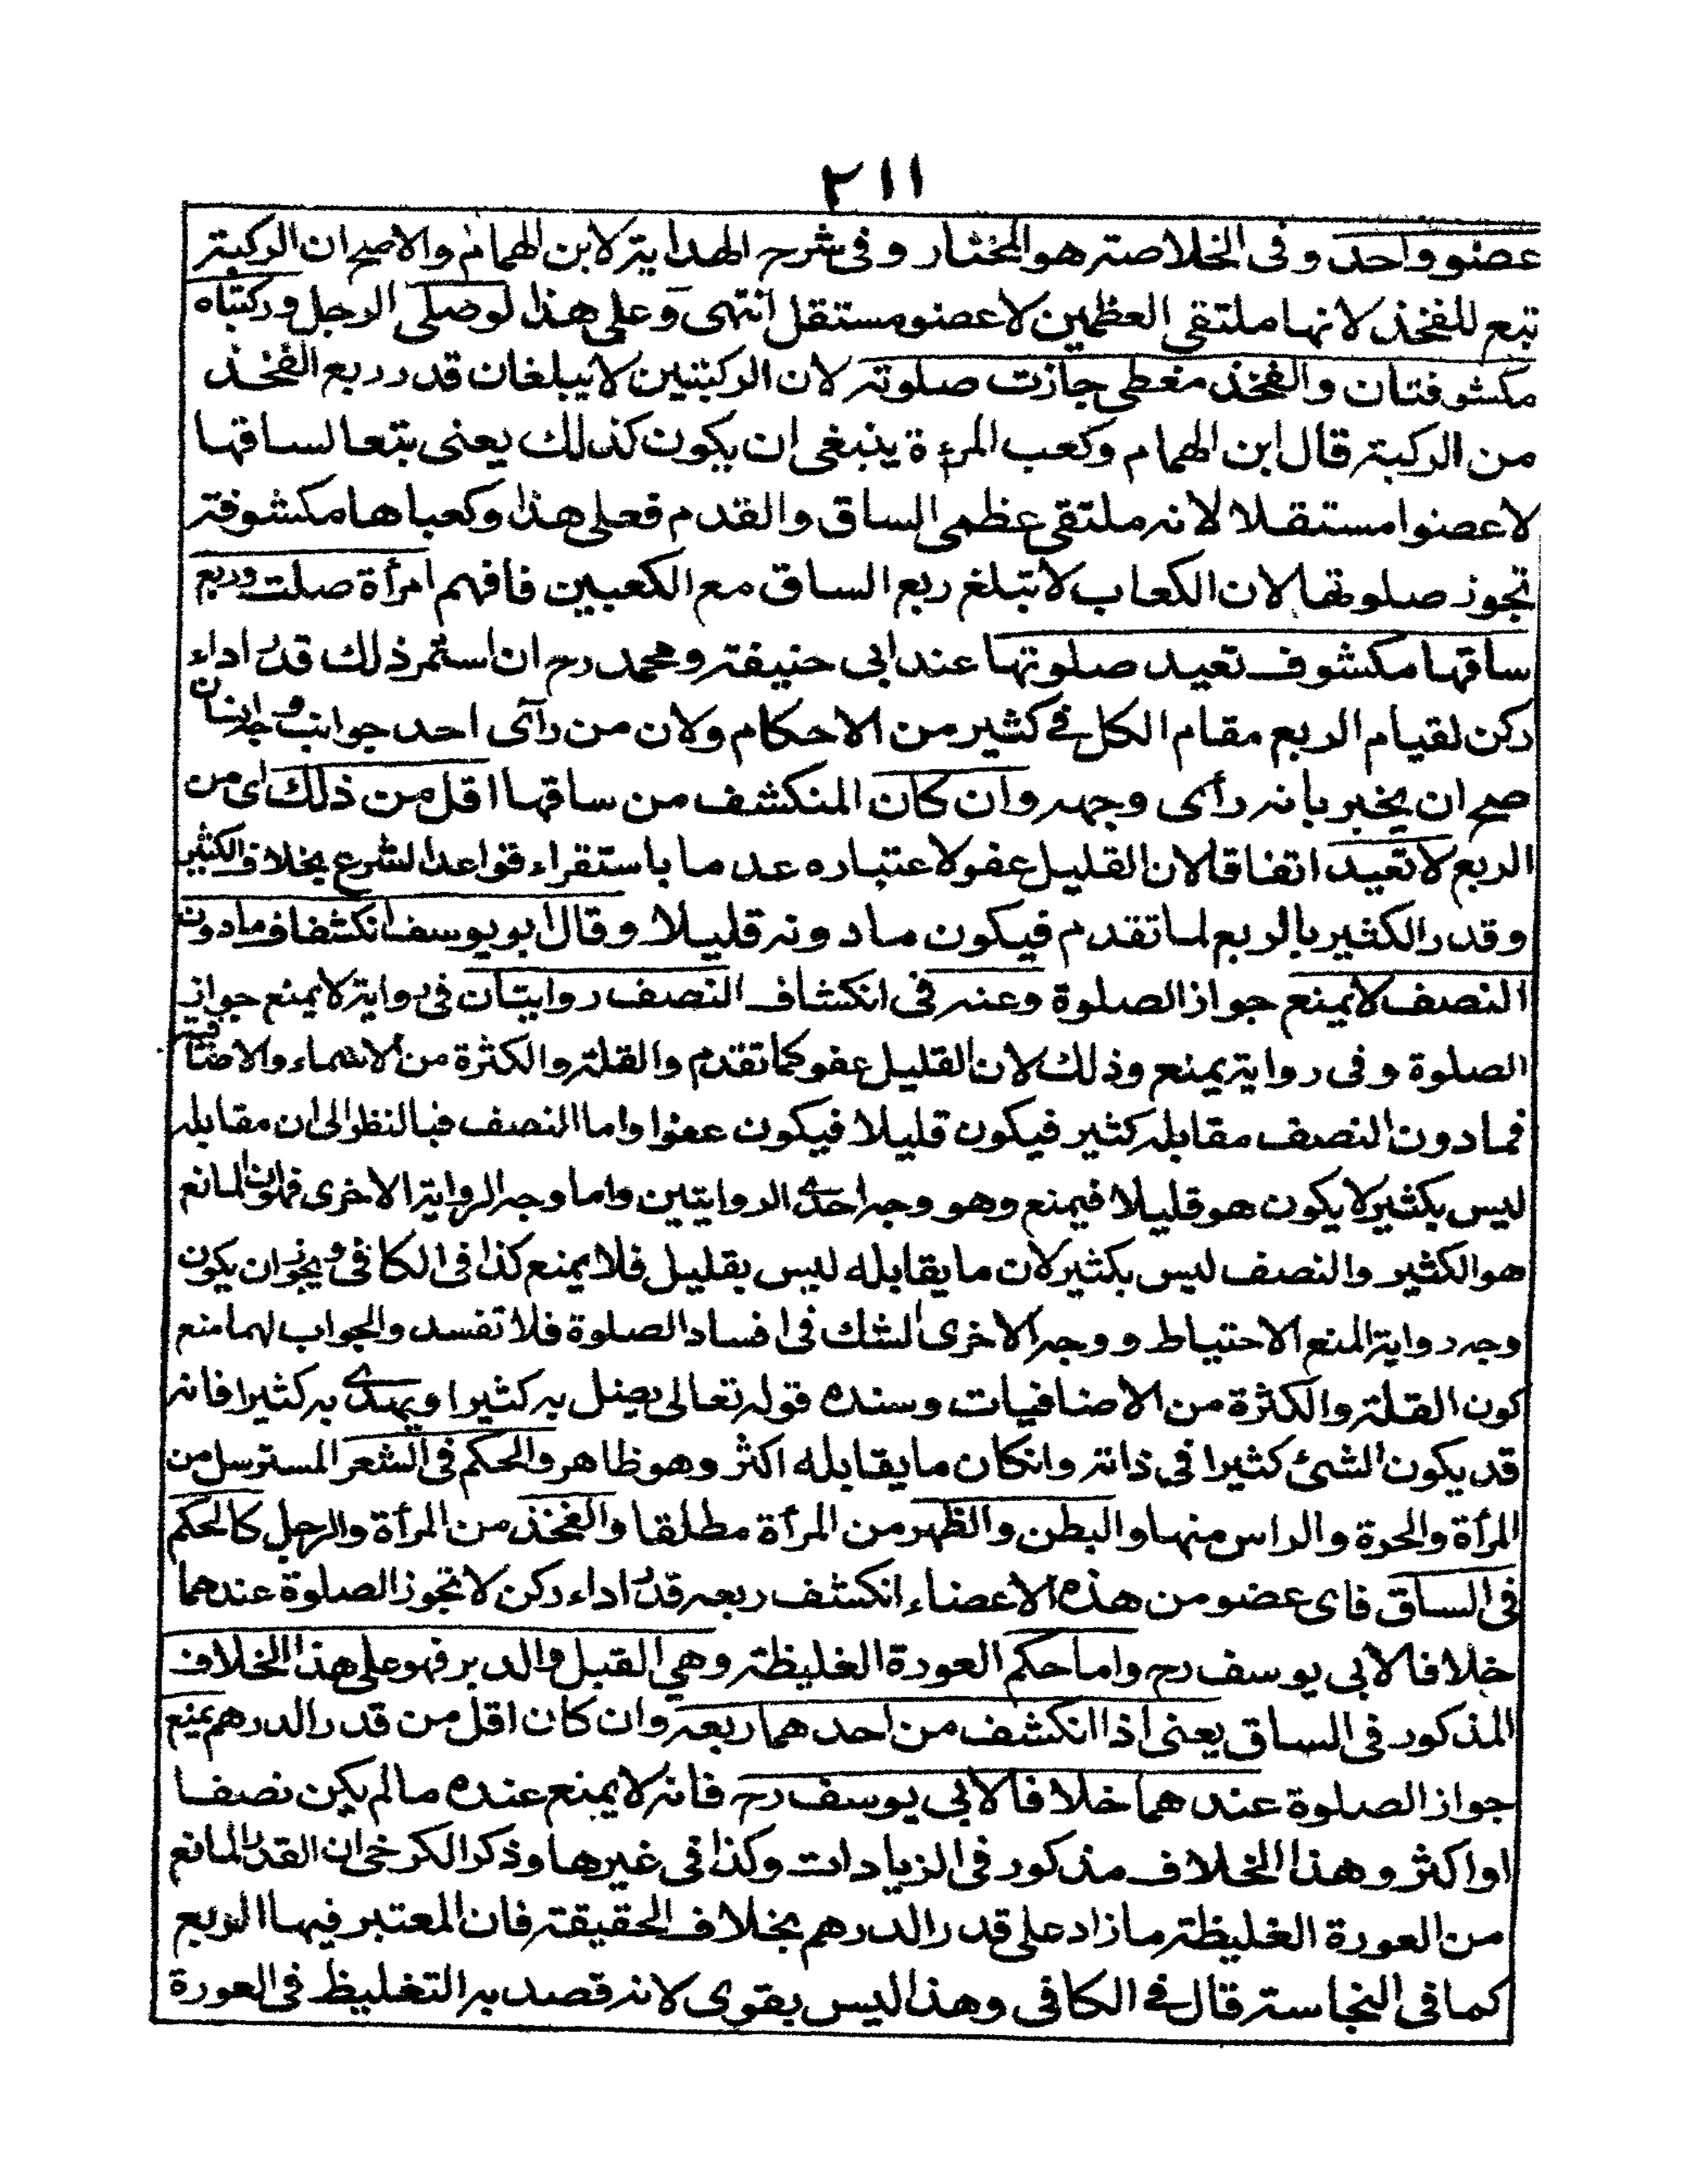 ٢١١
عضو واحد وفى الخلاصة هو المختار وفى شرح الهداية لابن الهمام والاصح ان الركبة
تبع للفخذ لانها ملتقى العظمين لا عضو مستقل انتهى وعلى هذا لو صلى الرجل وركبتاه
مكشوفتان والفخذ مغطى جازت صلوته لان الركبتين لا يبلغان قدر ربع الفخذ
من الركبة قال ابن الهمام وكعب المرءة ينبغى ان يكون كذلك يعنى بتعا لساقها
لا عضوا مستقلا لانه ملتقى عظمى الساق والقدم فعلى هذا وكعباها مكشوفة
تجوز صلوتها لان الكعاب لا تبلغ ربع الساق مع الكعبين فافهم امرأة صلت وربع
ساقها مكشوف تعيد صلوتها عند ابى حنيفة ومحمد رح ان استمر ذلك قدر اداء
ركن لقيام الربع مقام الكل فى كثير من الاحكام ولان من رآى احد جوانب وجه انسان
صح ان يخبر بانه رأى وجهه وان كان المنكشف من ساقها اقل من ذلك اى من
الربع لا تعيد اتفاقا لان القليل عفو لاعتباره عدما باستقراء قواعد الشرع بخلاف الكثير
وقدر الكثير بالربع لما تقدم فيكون ما دونه قليلا وقال ابو يوسف انكشاف ما دون
النصف لا يمنع جواز الصلوة وعنه فى انكشاف النصف روايتان فى رواية لا يمنع جواز
الصلوة وفى رواية يمنع وذلك لان القليل عفو كما تقدم والقلة والكثرة من الاسماء والاضافية
فما دون النصف مقابله كثير فيكون قليلا فيكون عفوا واما النصف فبالنظر الى ان مقابله
ليس بكثير لا يكون هو قليلا فيمنع وهو وجه احدى الروايتين واما وجه الرواية الاخرى فهو ان المانع
هو الكثير والنصف ليس بكثير لان ما يقابله ليس بقليل فلا يمنع كذا فى الكافى ويجوز ان يكون
وجه رواية المنع الاحتياط ووجه الاخرى الشك فى افساد الصلوة فلا تفسد والجواب لهما منع
كون القلة والكثرة من الاضافيات وسنده قوله تعالى يضل به كثيرا ويهدى به كثيرا فانه
قد يكون الشئ كثيرا فى ذاته وانكان ما يقابله اكثر وهو ظاهر والحكم فى الشعر المسترسل من
المرأة والحرة والراس منها والبطن والظهر من المرأة مطلقا والفخذ من المرأة والرجل كالحكم
فى الساق فاى عضو من هذه الاعضاء انكشف ربعه قدر اداء ركن لا تجوز الصلوة عندهما
خلافا لابى يوسف رح واما حكم العورة الغليظة وهى القبل والدبر فهو على هذا الخلاف
المذكور فى الساق يعنى اذا انكشف من احدهما ربعه وان كان اقل من قدر الدرهم يمنع
جواز الصلوة عندهما خلافا لابى يوسف رح فانه لا يمنع عنده ما لم يكن نصفا
او اكثر وهذا الخلاف مذكور فى الزيادات وكذا فى غيرها وذكر الكرخى ان القدر المانع
من العورة الغليظة ما زاد على قدر الدرهم بخلاف الحقيقة فان المعتبر فيها الربع
كما فى النجاسة قال فى الكافى وهذا ليس بقوى لانه قصد به التغليظ فى العورة